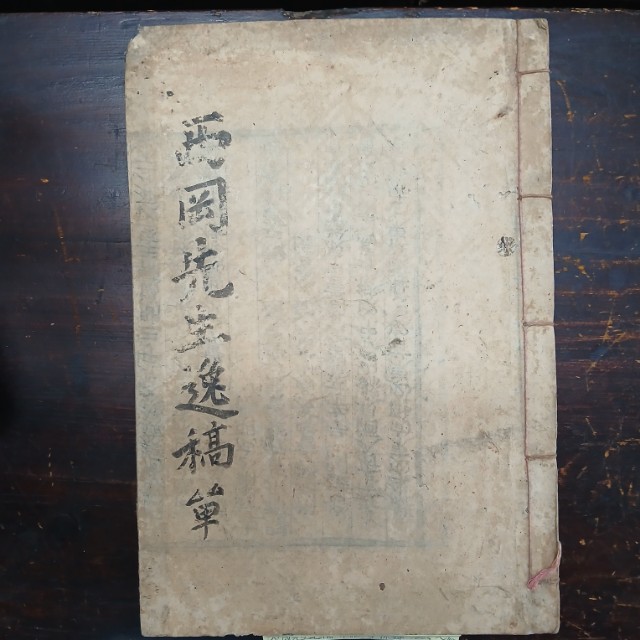 西岡先生逸稿單